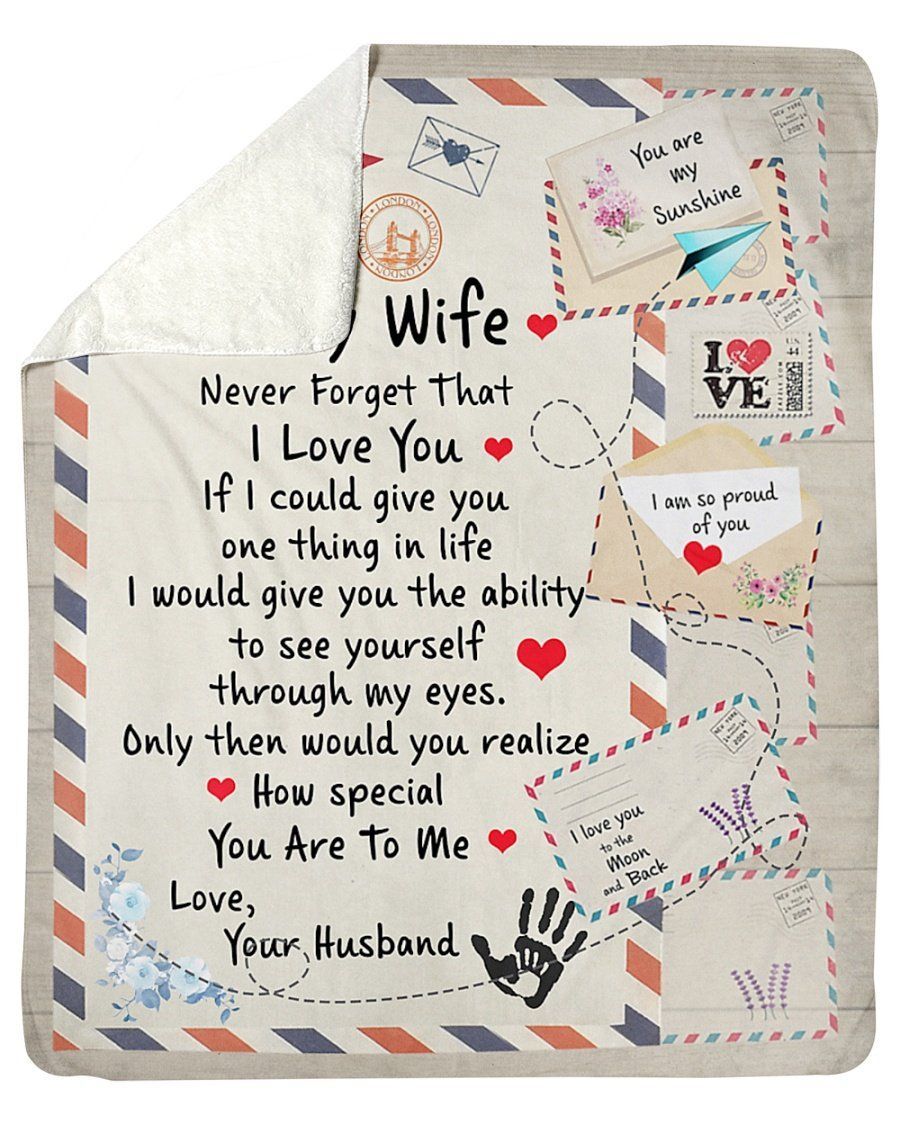 LONDON LONDON LONDON LONDON
y Wife
Never Forget That
I Love You
If I could give you
one thing in life
I would give you the ability
to see yourself
through my eyes.
Only then would you realize
How special
You Are To Me
Love,
Your Husband
NEW YORK
2009
You are
my
Sunshine
2009
LOVE
U.S.
44
ZAZZLE.COM
I am so proud
of you
NEW YORK
2009
I love you
to the
Moon
and Back
NEW YORK
2009